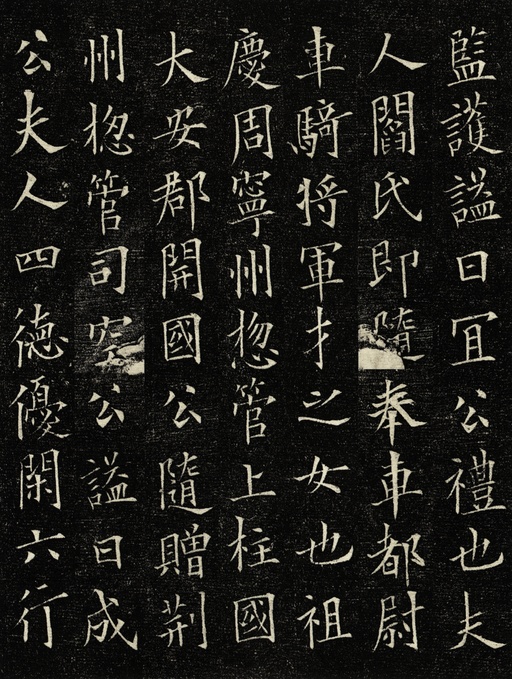 監護謚曰宜公禮也夫
人閻氏即隨奉車都尉
車騎将軍才之女也祖
慶周寧州揔管上柱國
大安郡開國公隨贈荆
州揔管司空公謚曰成
公夫人四徳優閑六行